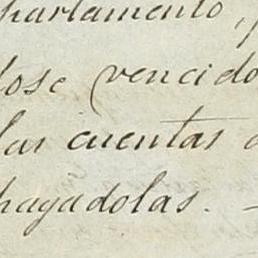 parlamento,
dose vencido
las cuentas
pagadolas.